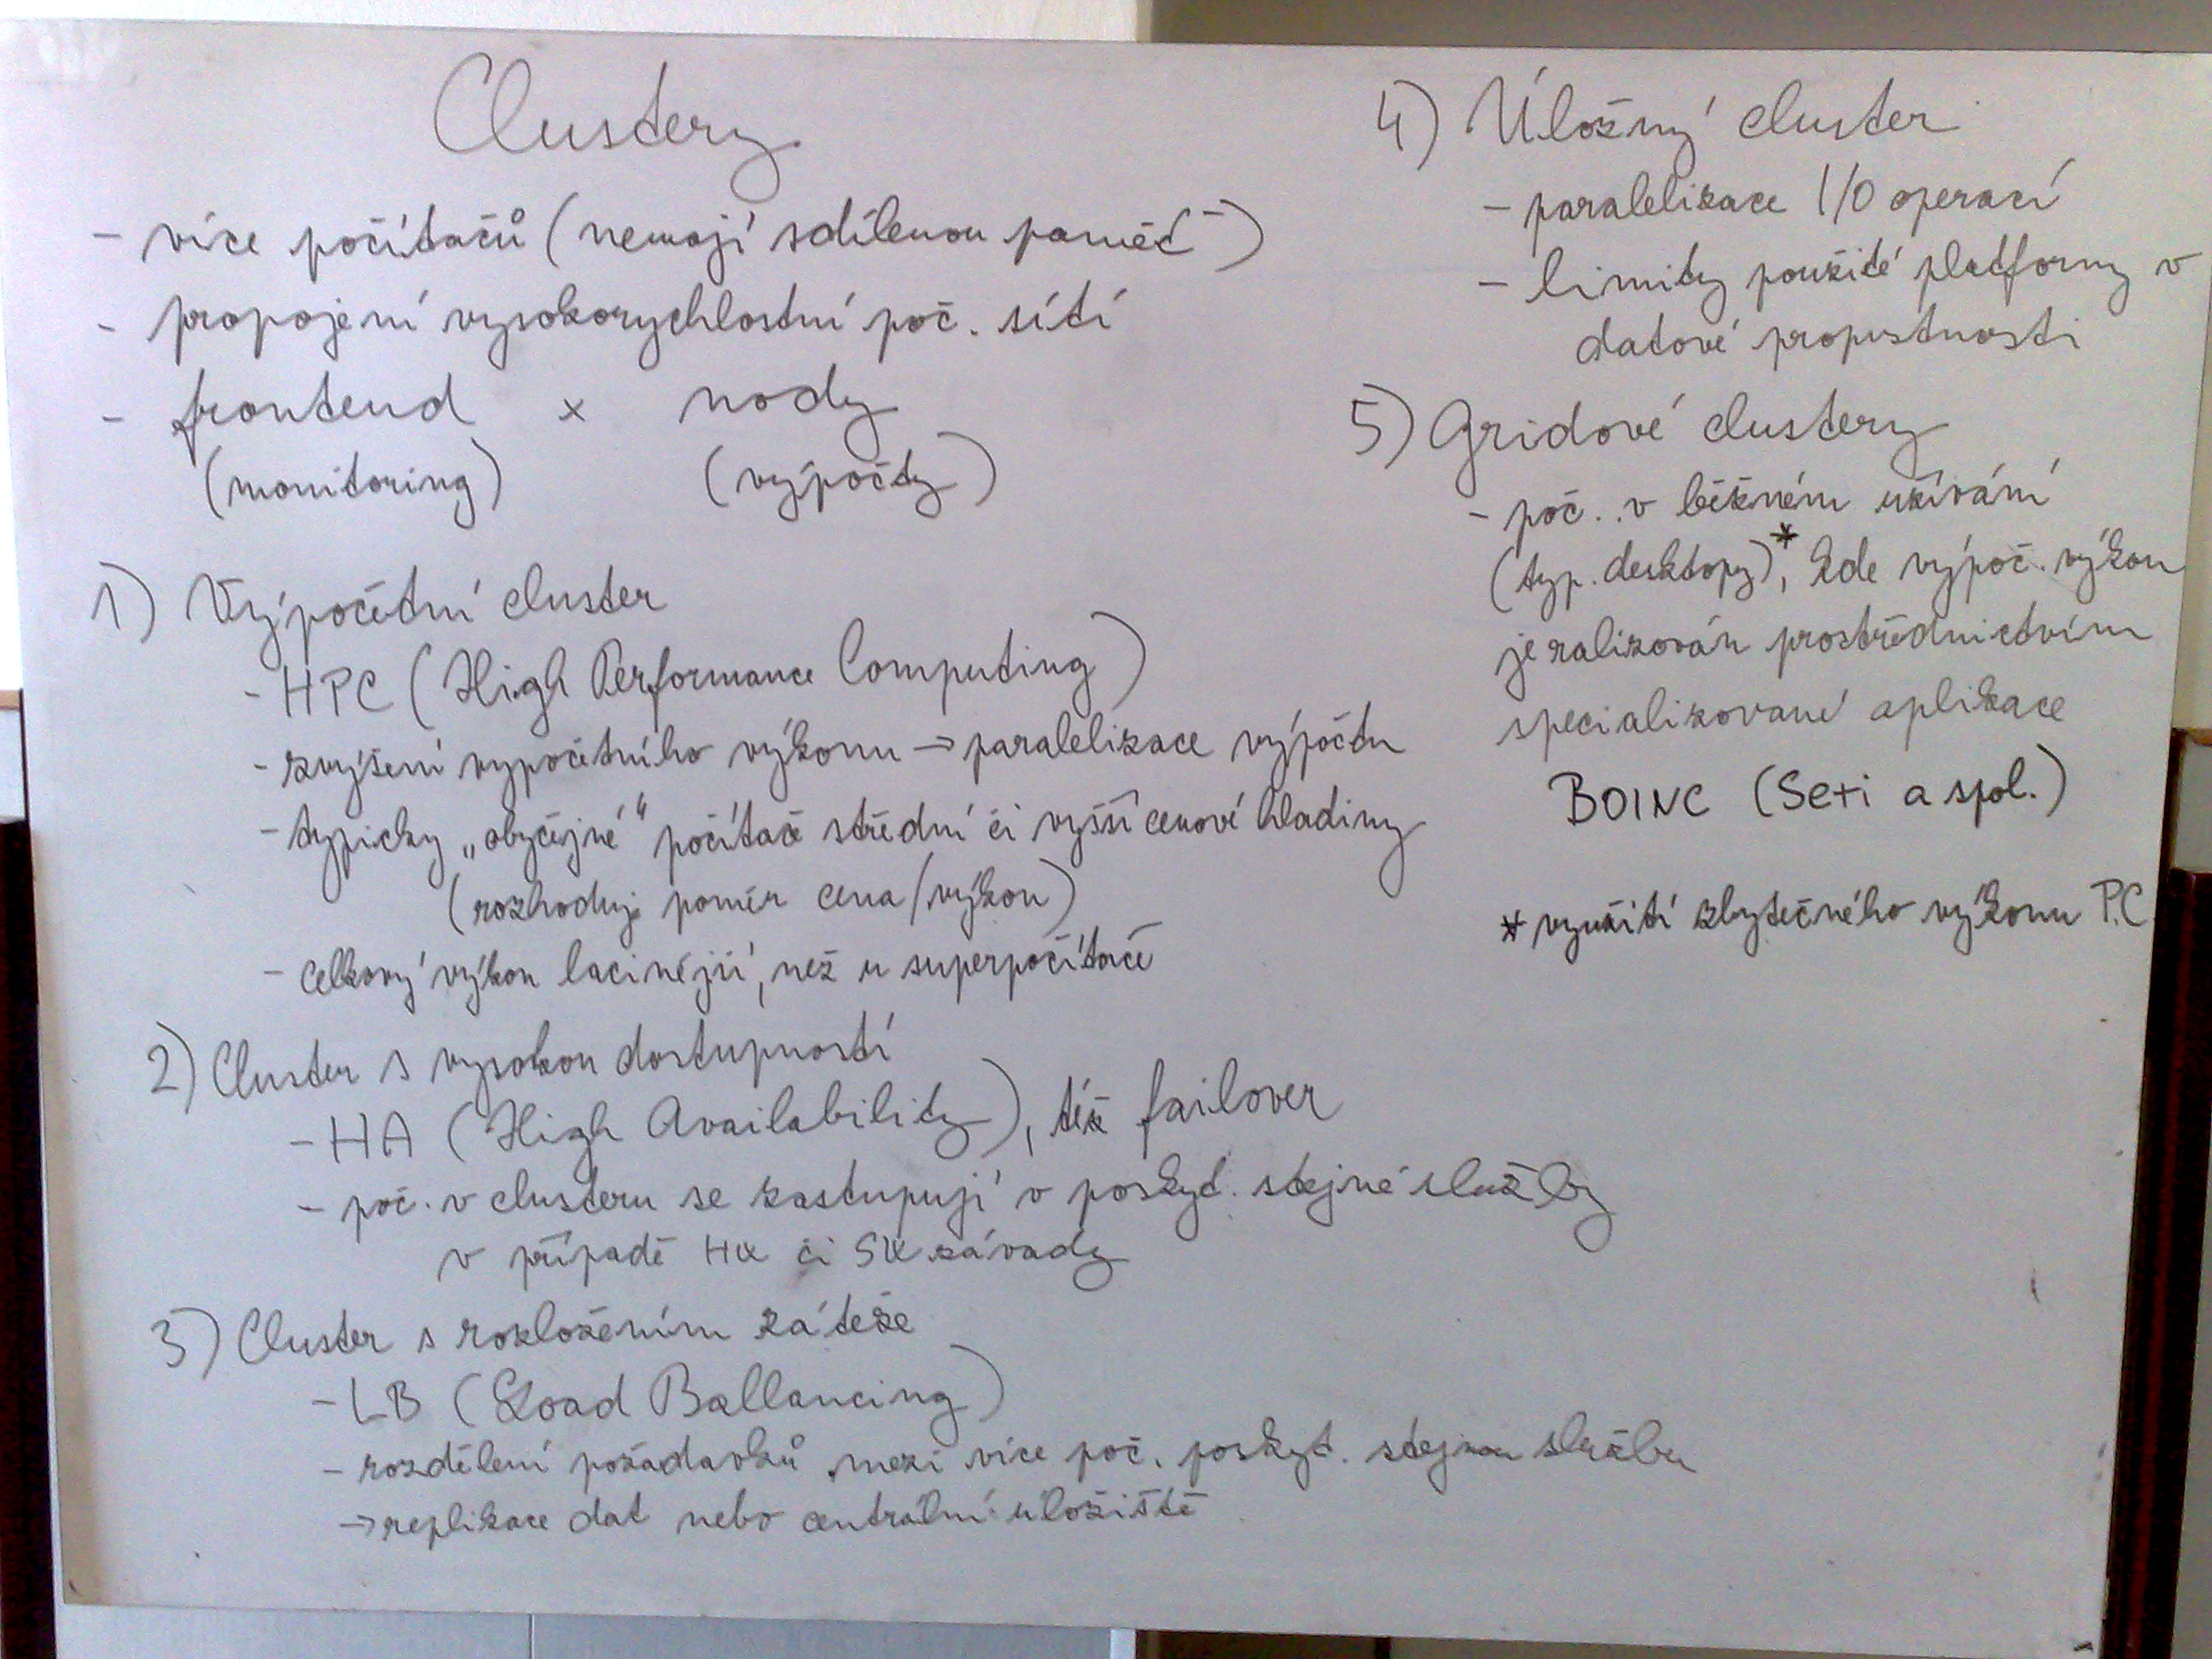 Clustery
- více počítačů (nemají sdílenou paměť)
- propojení vysokorychlostní poč. sítí
- frontend x nody
(monitoring) (výpočty)
1) Výpočetní cluster
- HPC (High Performance Computing)
- zvýšení výpočetního výkonu → paralelizace výpočtu
- typicky „obyčejné“ počítače střední či vyšší cenové hladiny
(rozhoduje poměr cena/výkon)
- celkový výkon lacinější, než u superpočítače
2) Cluster s vysokou dostupností
- HA (High Availability), též failover
- poč. v clusteru se zastupují v poskyt. stejné služby
v případě HW či SW závady
3) Cluster s rozložením zátěže
- LB (Load Ballancing)
- rozdělení požadavků mezi více poč. poskyt. stejnou službu
→ replikace dat nebo centrální úložiště
4) Úložný cluster
- paralelizace I/O operací
- limity použité platformy v
datové propustnosti
5) Gridové clustery
- poč. v běžném užívání
(typ. desktopy)*, kde výpoč. výkon
je ralizován prostřednictvím
specializované aplikace
BOINC (Seti a spol.)
* využití zbytečného výkonu PC